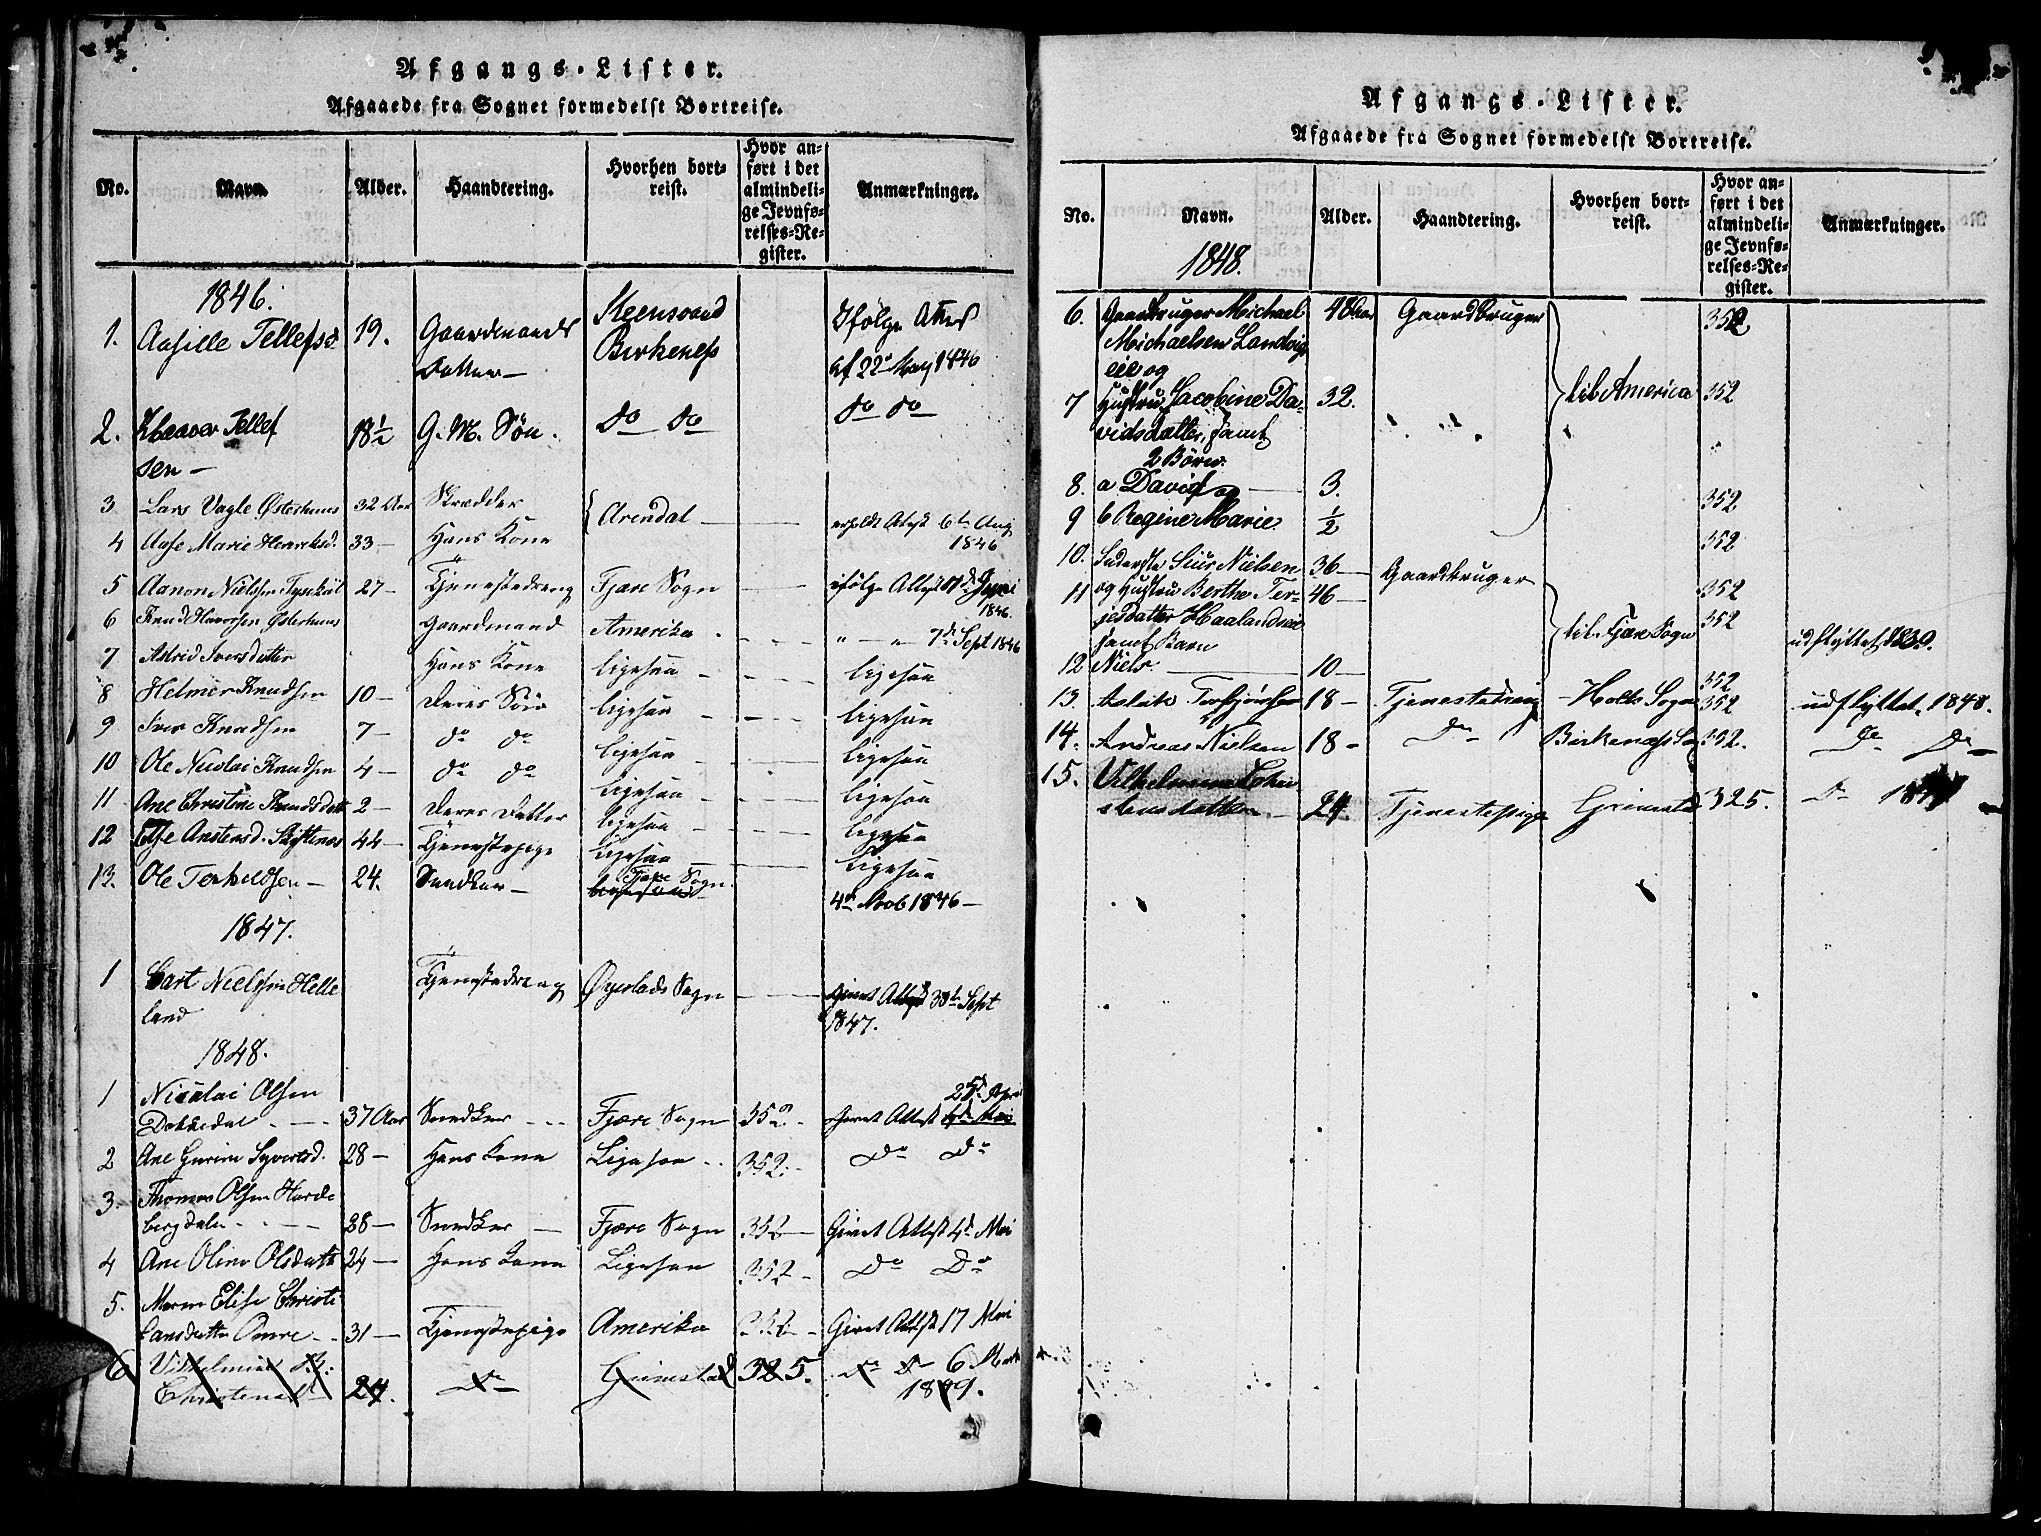 Afgangs-Lister.
Afgaaede fra Sognet formedelst Bortreise.
No. Navn. Alder. Haandtering. Hvorhen bortreist. Hvor anført i det almindelige Jevnførelses-Register. Anmærkninger.
1846.
1. Aasille Tellefsd. 19. Gaardmands Datter — Steensvand Birkenes Ifølge Attest af 22de Maj 1846
2. Tellefsen — 18½ G. M. Søn. do do do do
3 Lars Vagle Østerhuus 32 Aar Skrædder Arendal erholdt Attest 6te Aug 1846
4 Aase Marie Henriksd. 33 — Hans Kone
5 Aanon Nielsen 27 — Tjenestedreng Fjære Sogn ifølge Attest 1846.
6 Knud Østerhuus Gaardmand Amerika " — " 7de Sept 1846
7 Astrid Iversdatter Hans Kone ligesaa ligesaa
8 Helmer Knudsen 10 — Deres Søn ligesaa ligesaa
9 Iver Knudsen 7 — do do ligesaa ligesaa
10 Ole Nicolai Knudsen 4 — do do ligesaa ligesaa
11 Ane Christine Knudsdatt 2 — Deres Datter ligesaa ligesaa
12 Else Anstensd. 44 — Tjenestepige ligesaa ligesaa
13. Ole Terkildsen — 24. Snedker — Fjære Sogn. 4de Novb 1846 —
1847.
1 Nielsen Helle
land Tjenestedreng Øyestads Sogn Givet Attest 30te Sept
1847.
1848.
1 Nicolai Olsen
Dokkedal 37 Aar Snedker Fjære Sogn 352 Givet Attest
2 Ane Gurine Syvertsd. 28 — Hans Kone Ligesaa 352. Do Do
3. Thomas Olsen
28 — Snedker — Fjære Sogn 352 Givet Attest 4de Mai
4 Ane Oline Olsdatt 24 — Hans Kone Ligesaa 352 — Do Do
5. Maren Elise Christi
ansdatter Omre 31 — Tjenestepige Amerika 352 Givet Attest 17 Mai
6 Vilhelmine
Christensd 24. Do — Grimstad 325. Do Do 6
1849.
Afgangs-Lister.
Afgaaede fra Sognet formedelst Bortreise.
No. Navn. Alder. Haandtering. Hvorhen bortreist. Hvor anført i det almindelige Jevnførelses-Register. Anmærkninger.
1848.
6. Gaardbruger Michael
Michaelsen Landvig
eie og 48 Aar Gaardbruger til America 352
7 Hustru Jacobine Da-
vidsdatter, samt
2 Børn. 32. 352
8. a David og — 3. 352
9 b Regine Marie. ½ 352
10. Siur Nielsen 36 — Gaardbruger 352
11 og Hustru Berthe Ter-
jesdatter
samt Barn 46 — til Fjære Sogn 352 udflyttet 1839.
12 Niels. — 10 — 352
13. Torbjørnsen 18 — Tjenestedreng Holts Sogn 352 udflyttet 1848.
14. Andreas Nielsen 18 — Do Birkenæs So 352. Do Do —
15. Vilhelmine Chri
stensdatter. — 24. Tjenestepige Grimstad 325. Do